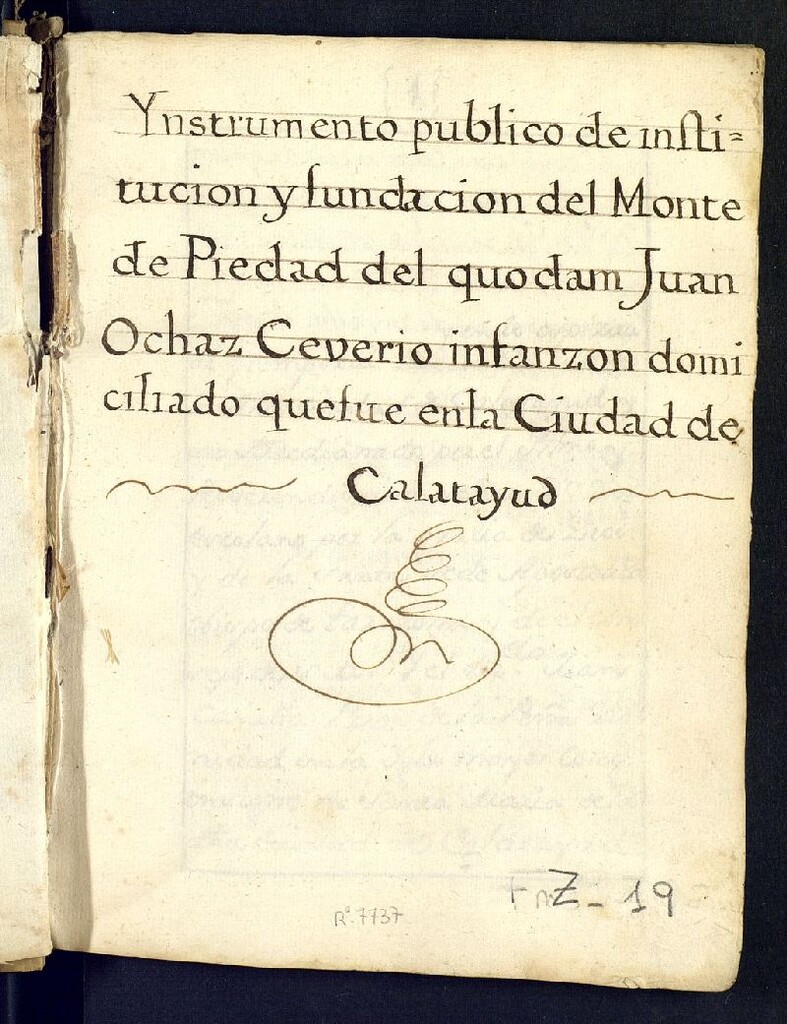 Ynstrumento publico de insti=
tucion y fundacion del Monte
de Piedad del quodam Juan
Ochaz Ceverio infanzon domi
ciliado quefue enla Ciudad de
Calatayud
Z_ 19
Rº. 7737